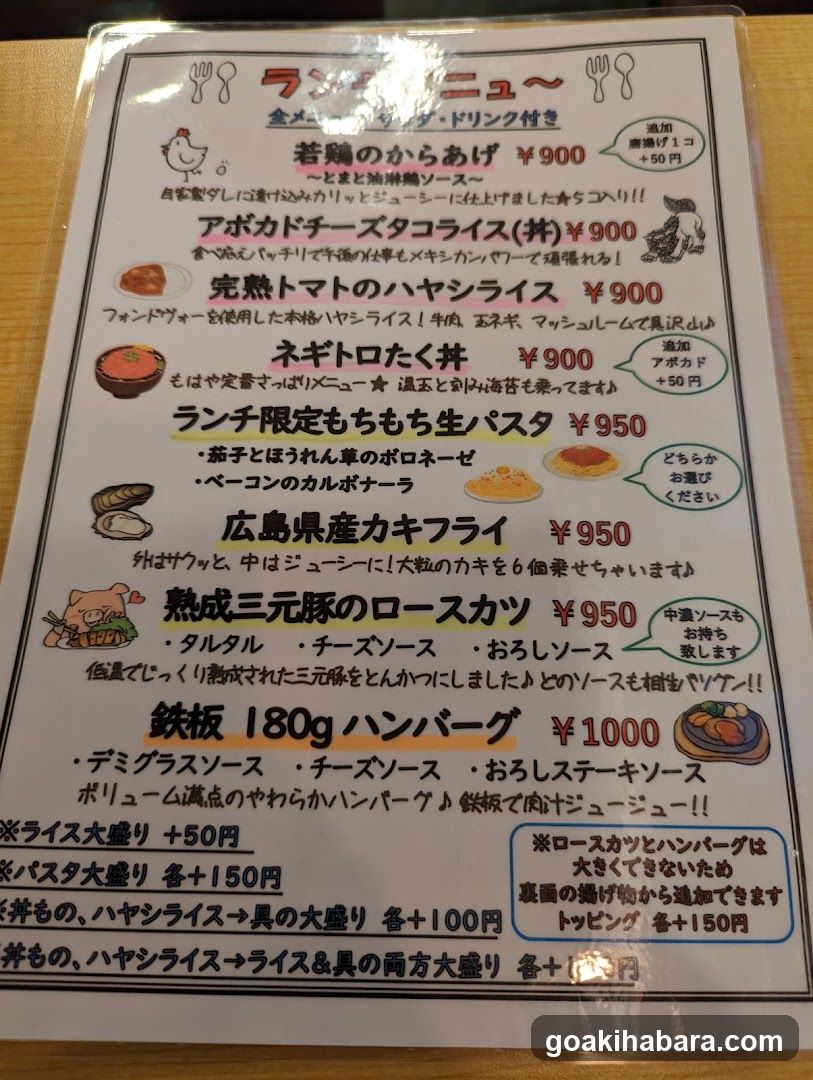 ランチメニュ〜
全メニ サラダ・ドリンク付き
若鶏のからあげ ￥900
〜とまと油淋鶏ソース〜
追加
唐揚げ１コ
+50円
自家製ダレに漬け込みカリッとジューシーに仕上げました★5コ入り!!
アボカドチーズタコライス(丼) ￥900
食べ応えバッチリで午後の仕事もメキシカンパワーで頑張れる!
完熟トマトのハヤシライス ￥900
フォンドヴォーを使用した本格ハヤシライス! 牛肉、玉ネギ、マッシュルームで具沢山♪
ネギトロたく丼 ￥900
追加
アボカド
+50円
もはや定番さっぱりメニュー★ 温玉と刻み海苔も乗ってます♪
ランチ限定もちもち生パスタ ￥950
・茄子とほうれん草のボロネーゼ
・ベーコンのカルボナーラ
どちらか
お選び
ください
広島県産カキフライ ￥950
外はサクッと、中はジューシーに!大粒のカキを6個乗せちゃいます♪
熟成三元豚のロースカツ ￥950
・タルタル ・チーズソース ・おろしソース
中濃ソースも
お持ち
致します
低温でじっくり熟成された三元豚をとんかつにしました♪ どのソースも相性バツグン!!
鉄板 180g ハンバーグ ￥1000
・デミグラスソース ・チーズソース ・おろしステーキソース
ボリューム満点のやわらかハンバーグ♪ 鉄板で肉汁ジュージュー!!
※ライス大盛り +50円
※パスタ大盛り 各+150円
※丼もの、ハヤシライス→具の大盛り 各+100円
丼もの、ハヤシライス→ライス&具の両方大盛り 各+
※ロースカツとハンバーグは
大きくできないため
裏面の揚げ物から追加できます
トッピング 各+150円
goakihabara.com